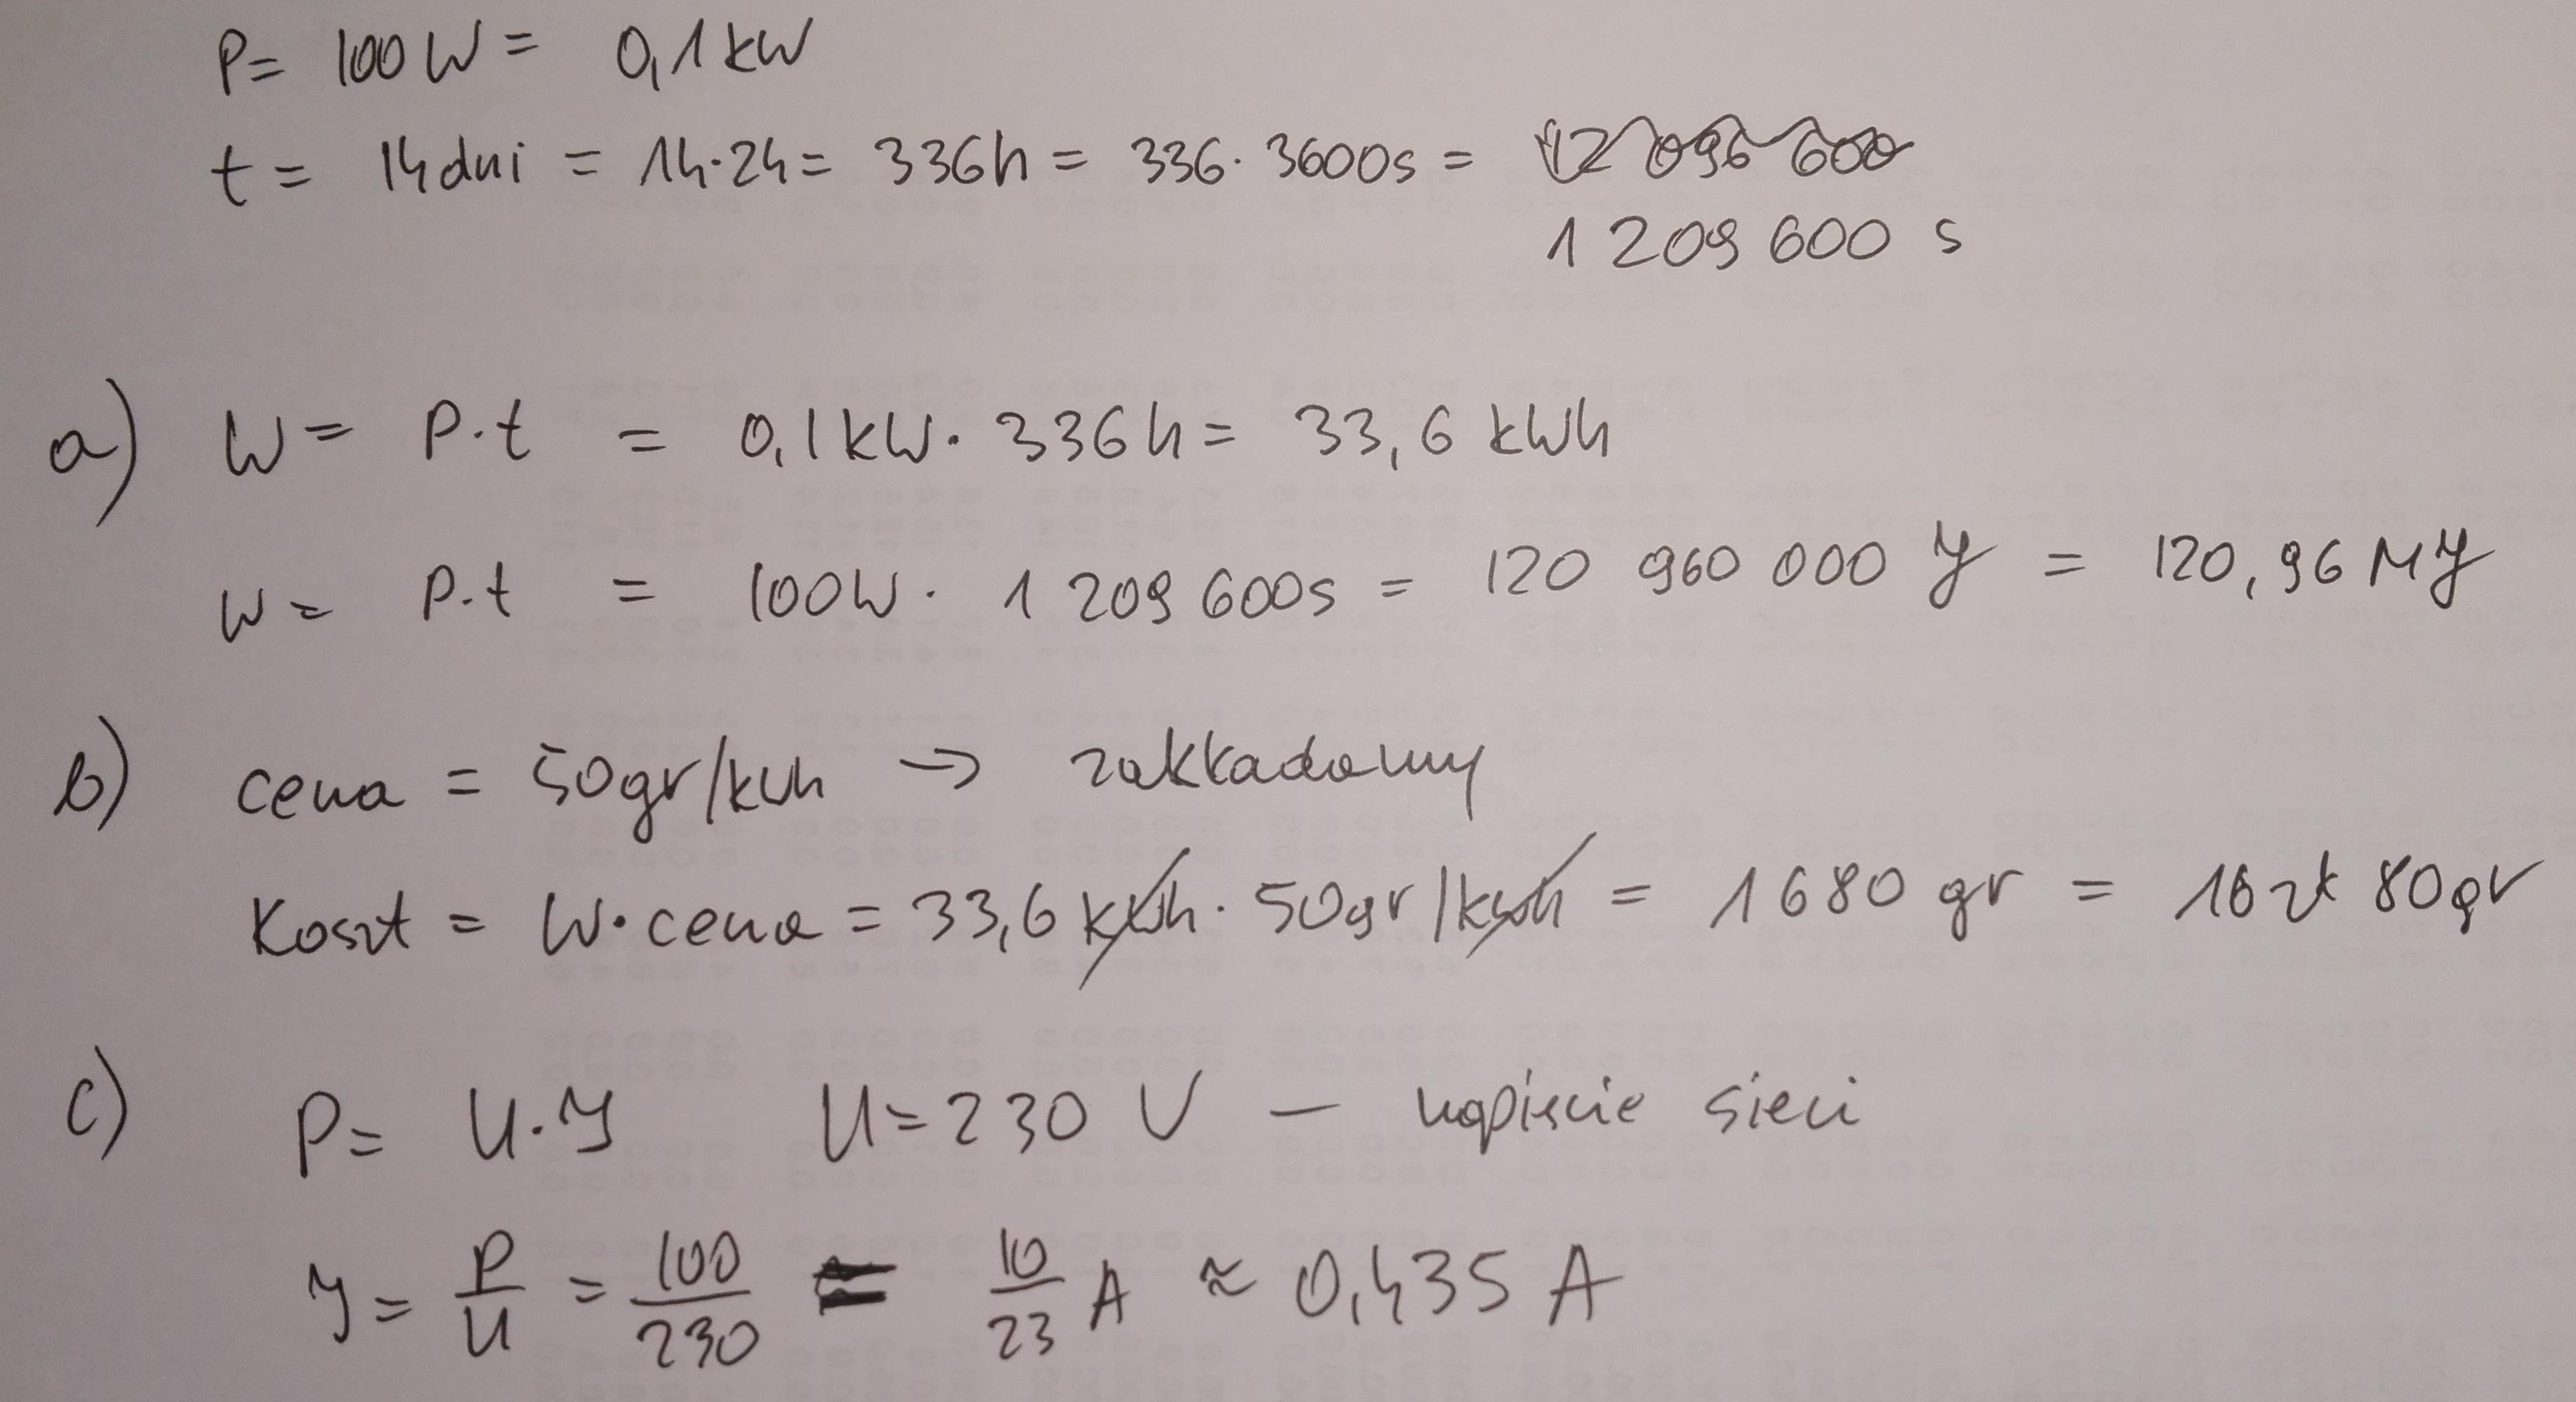 P= 100W = 0,1kW
t = 14dni = 14·24= 336h = 336·3600s = 12 096 600
1 209 600 s
a) W= P·t = 0,1kW·336h= 33,6 kWh
W= P·t = 100W·1 209 600s = 120 960 000 J = 120,96 MJ
b) cena = 50gr/kWh → zakładamy
Koszt = W·cena = 33,6 kWh·50gr/kWh = 1680 gr = 16zł 80gr
c) P= U·J U=230 V – napięcie sieci
J= P/U = 100/230 = 10/23 A ≈ 0,435 A